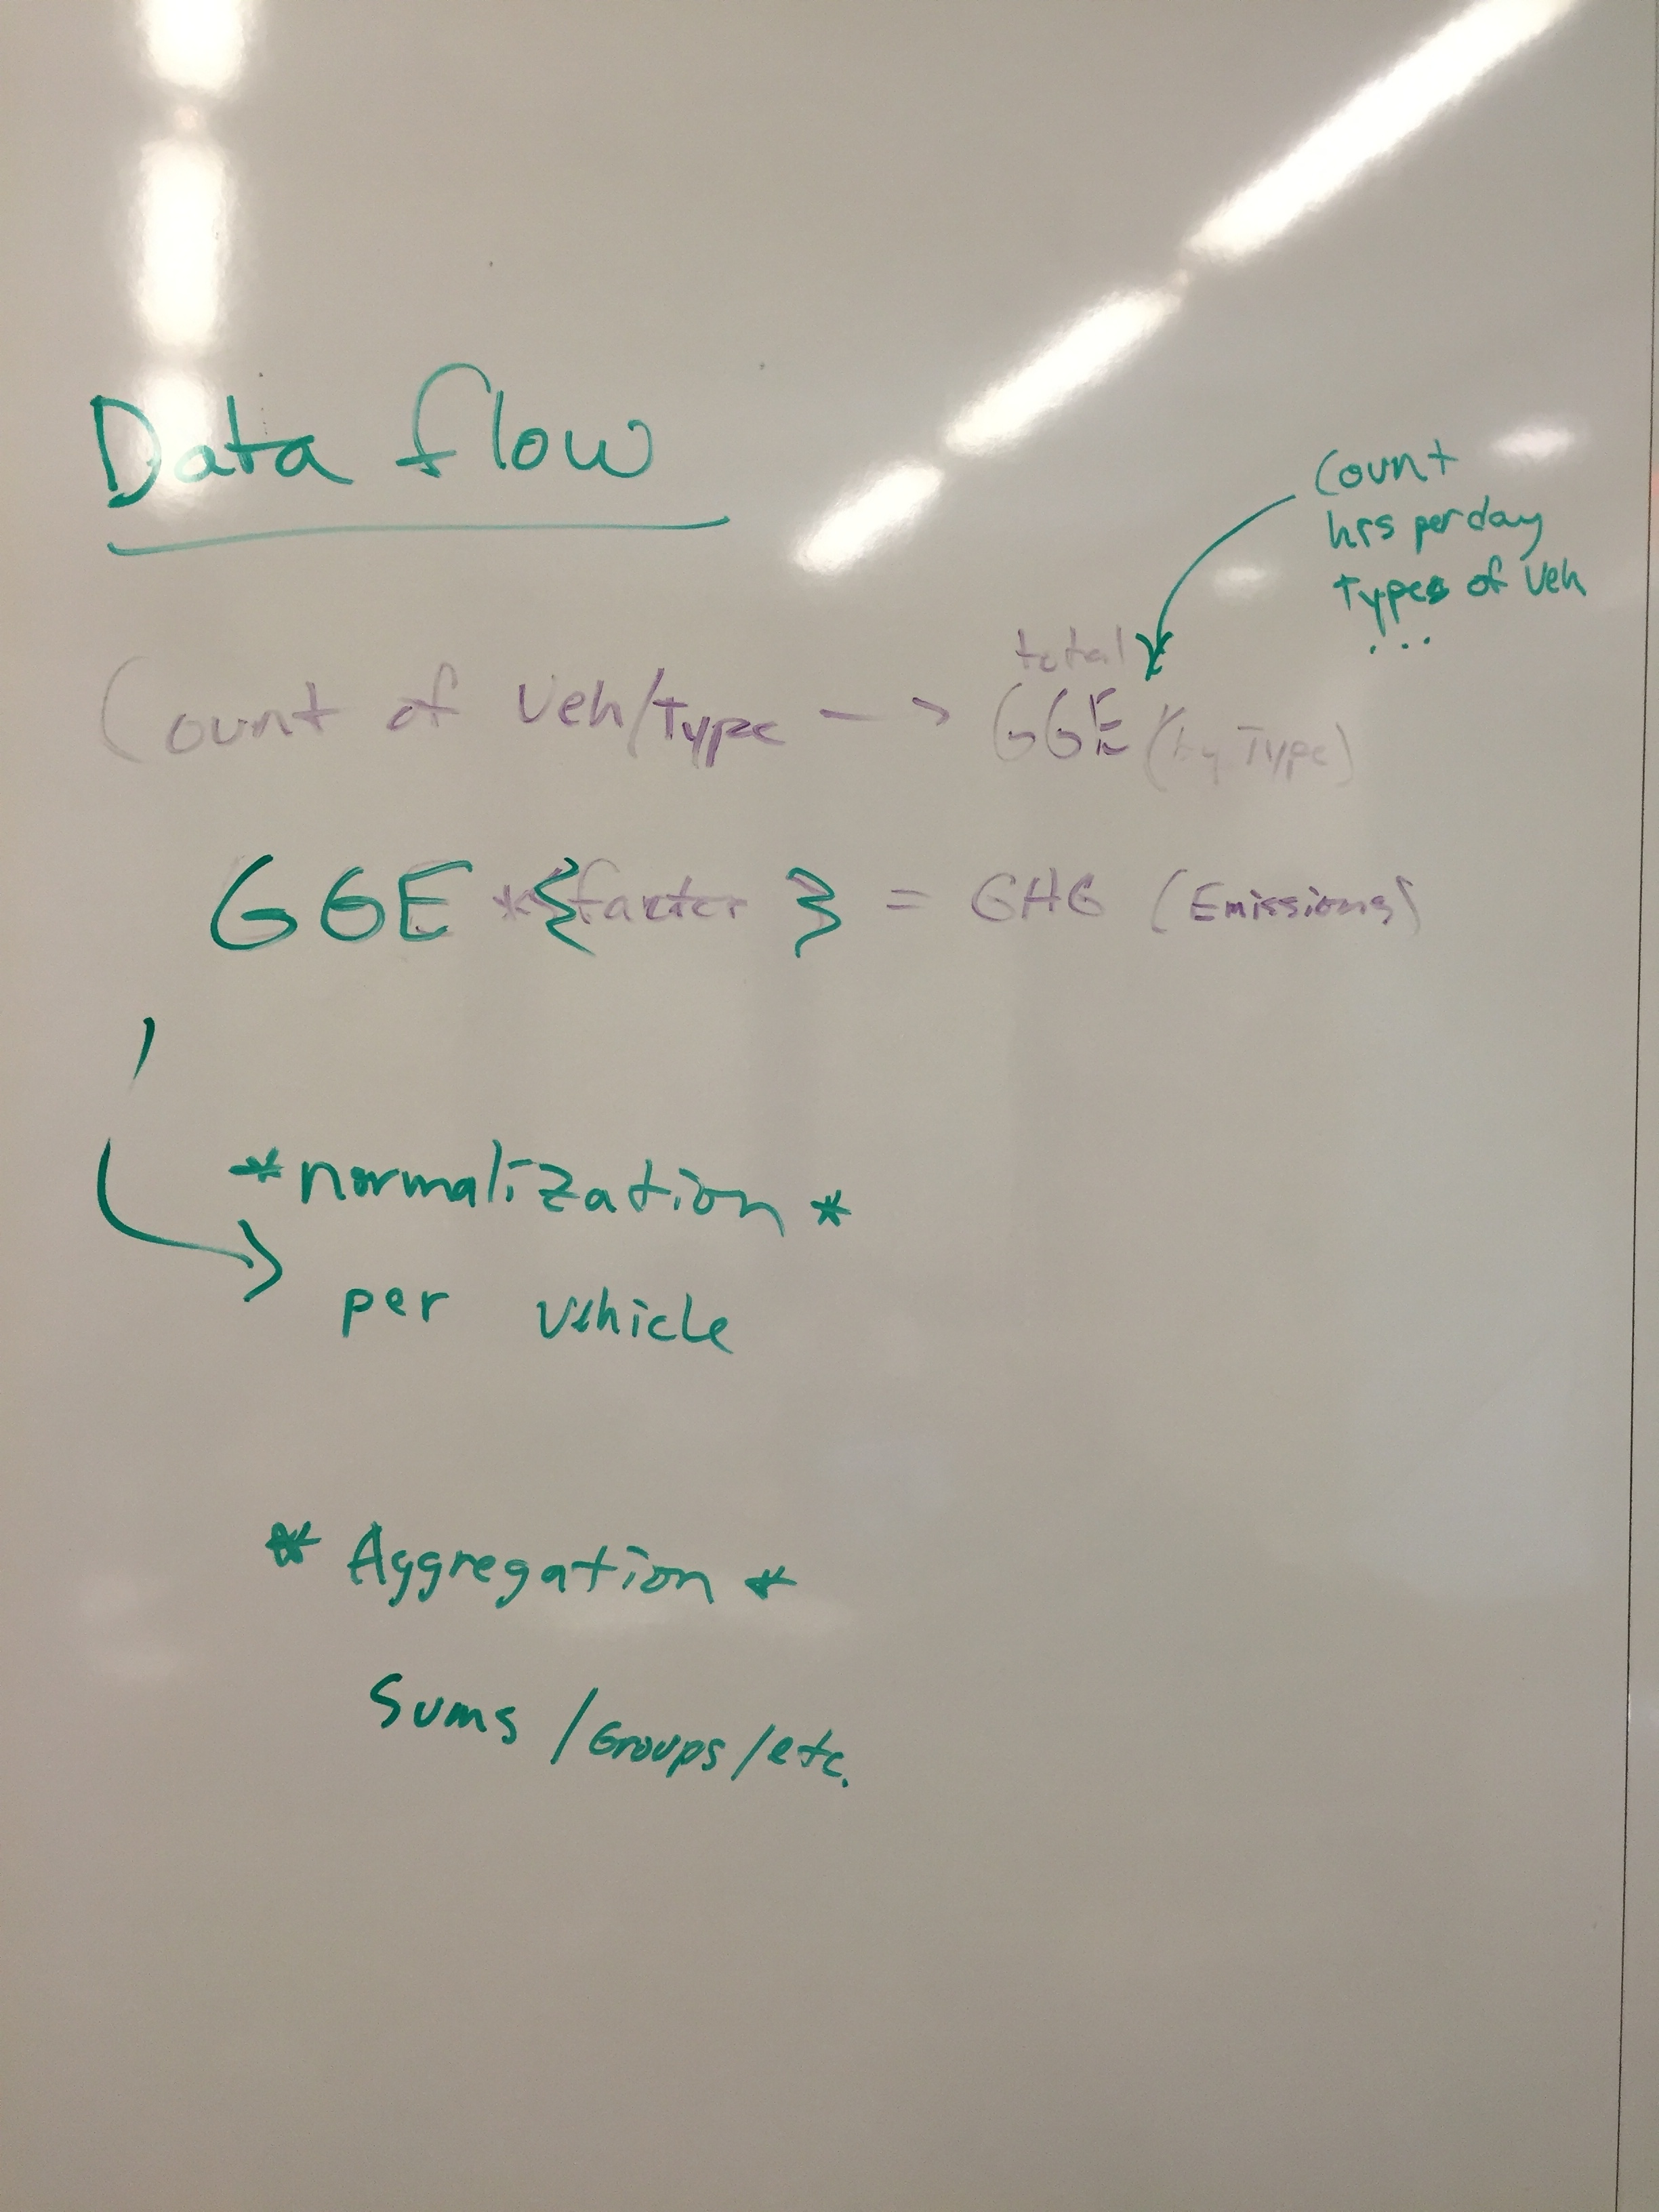 Data flow
Count
hrs per day
Types of Veh
...
total
Count of Veh/Type --> GGE (by Type)
GGE * {factor } = GHG (Emissions)
*normalization *
per vehicle
* Aggregation *
Sums /Groups/etc.